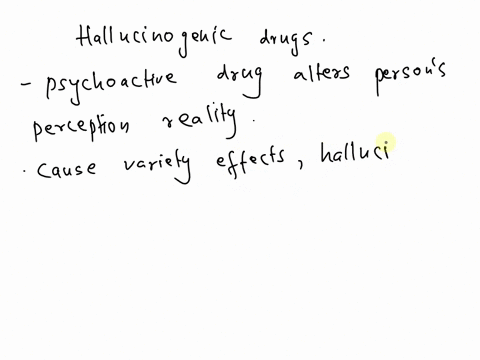 Hallucinogenic drugs.
- psychoactive drug alters person's
perception reality.
. cause variety effects, halluci